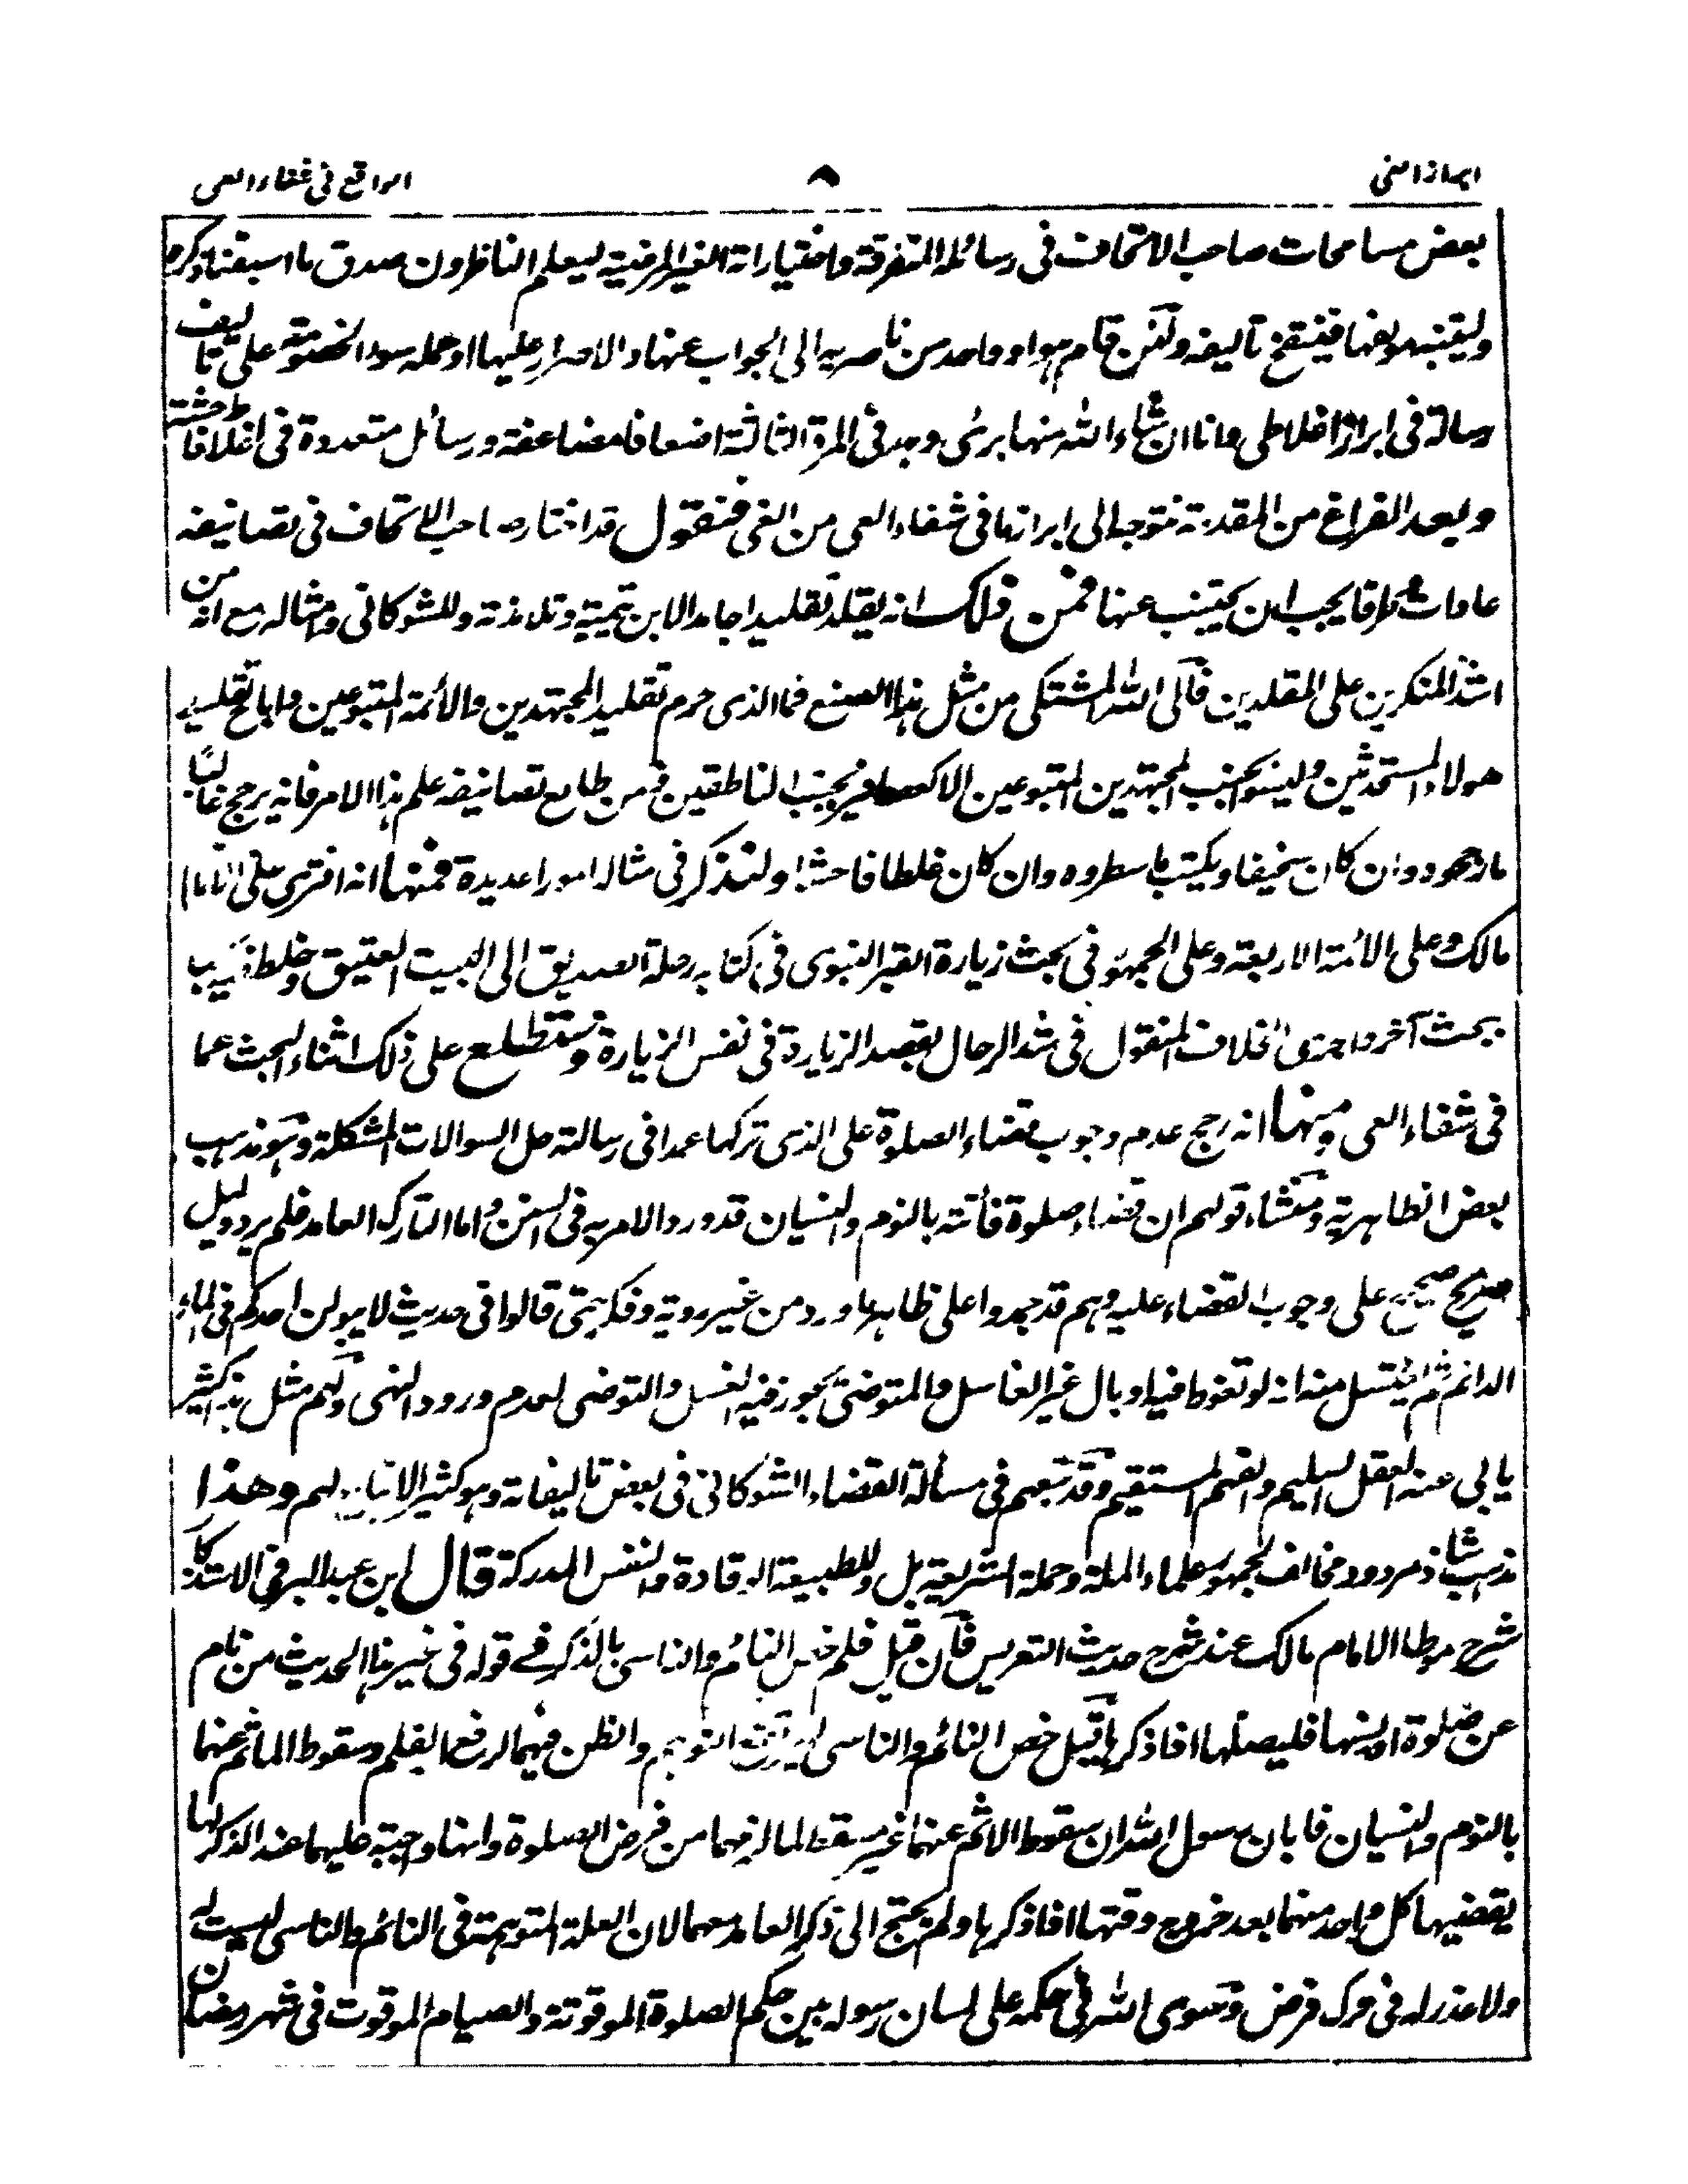 ابراز الغى
٨
الواقع فى شفاء العى
بعض مسامحات صاحب الاتحاف فى رسائله المتفرقة واختياراته الغير المرضية ليعلم الناظرون صدق ما اسبقنا ذكره
وليتنبه مولفها فينقح تاليفه ولئن قام هو او واحد من ناصريه الى الجواب عنها والاصرار عليها او حمله سوء الخصومة على تاليف
رسالة فى ابراز اغلاطى وانا ان شاء الله منها برئى وجد فى المرة الثانية اضعافا مضاعفة ورسائل متعددة فى اغلاط فاحشة
وبعد الفراغ من المقدمة نتوجه الى ابرازها فى شفاء العى من الغى فنقول قد اختار صاحب الاتحاف فى تصانيفه
عادات وطرقا يجب ان يجتنب عنها فمن ذلك انه يقلد تقليدا جامدا لابن تيمية وتلامذته وللشوكانى وامثاله مع انه من
اشد المنكرين على المقلدين فالى الله المشتكى من مثل هذا الصنع فما الذى حرم تقليد المجتهدين والائمة المتبوعين واباح تقليد
هولاء المستحدثين وليسوا بجنب المجتهدين المتبوعين الا كعصافير بجنب الناطقين فمن طالع تصانيفه علم هذا الامر فانه يرجح غالبا
ما رجحوه وان كان سخيفا ويكتب ما سطروه وان كان غلطا فاحشا ولنذكر فى مثاله امورا عديدة فمنها انه افترى على الامام
مالك وعلى الائمة الاربعة وعلى الجمهور فى بحث زيارة القبر النبوى فى كتابه رحلة الصديق الى البيت العتيق وخلط فيه
ببحث آخر واجرى الخلاف المنقول فى شد الرحال بقصد الزيارة فى نفس الزيارة وستطلع على ذلك اثناء البحث عما
فى شفاء العى ومنها انه رجح عدم وجوب قضاء الصلوة على الذى تركها عمدا فى رسالته حل السوالات المشكلة وهو مذهب
بعض الظاهرية ومنشاء قولهم ان قضاء صلوة فائتة بالنوم والنسيان قد ورد الامر به فى السنن واما التارك العامد فلم يرد دليل
صريح صحيح على وجوب القضاء عليه وهم قد جمدوا على ظاهر ما ورد من غير روية وفكر حتى قالوا فى حديث لا يبولن احدكم فى الماء
الدائم ثم يغتسل منه انه لو تغوط فيه او بال غير الغاسل والمتوضئ يجوز فيه الغسل والتوضى لعدم ورود النهى ولهم مثل هذا كثير
يابى عنه العقل السليم والفهم المستقيم وقد تبعهم فى مسألة القضاء الشوكانى فى بعض تاليفاته وهو كثير الاتباع لهم وهذا
مذهب شاذ مردود مخالف لجمهور علماء الملة وحملة الشريعة بل وللطبيعة الوقادة والنفس المدركة قال ابن عبد البر فى الاستذكار
شرح موطا الامام مالك عند شرح حديث التعريس فان قيل فلم خص النائم والناسى بالذكر فى قوله فى غير هذا الحديث من نام
عن صلوة او نسيها فليصلها اذا ذكرها قيل خص النائم والناسى ليرتفع التوهم والظن فيهما لرفع القلم وسقوط الماثم عنهما
بالنوم والنسيان فابان رسول الله ان سقوط الاثم عنهما غير مسقط لما لزمهما من فرض الصلوة وانها واجبة عليهما عند الذكر لها
يقضيها كل واحد منهما بعد خروج وقتها اذا ذكرها ولم يحتج الى ذكر العامد معهما لان العلة المتوهمة فى النائم والناسى ليست له
ولا عذر له فى ترك فرض وسوى الله فى حكمه على لسان رسوله بين حكم الصلوة الموقوتة والصيام الموقوت فى شهر رمضان